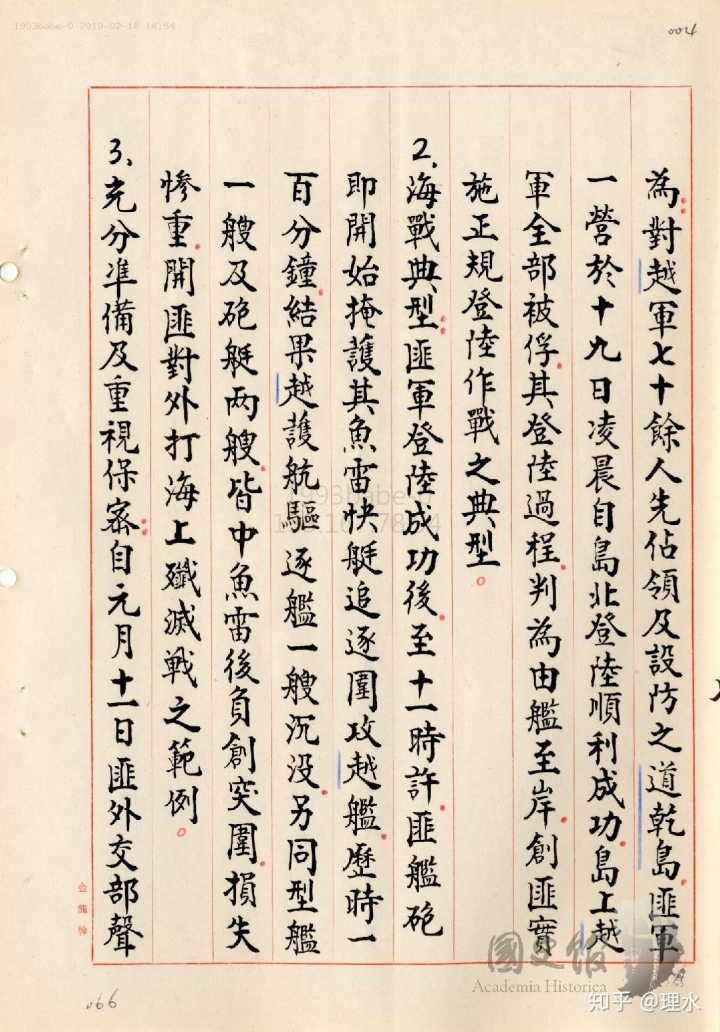 1993babe-0 2019-02-18 16:54
004
為對越軍七十餘人先佔領及設防之道乾島匪軍
一營於十九日凌晨自島北登陸順利成功島上越
軍全部被俘其登陸過程判為由艦至岸創匪實
施正規登陸作戰之典型。
2、海戰典型匪軍登陸成功後至十一時許匪艦砲
即開始掩護其魚雷快艇追逐圍攻越艦歷時一
百分鐘結果越護航驅逐艦一艘沉沒另同型艦
一艘及砲艇两艘皆中魚雷後負創突圍損失
慘重開匪對外打海上殲滅戰之範例。
3、充分準備及重視保密自元月十一日匪外交部聲
066
國史館
Academia Historica
知乎 @理水